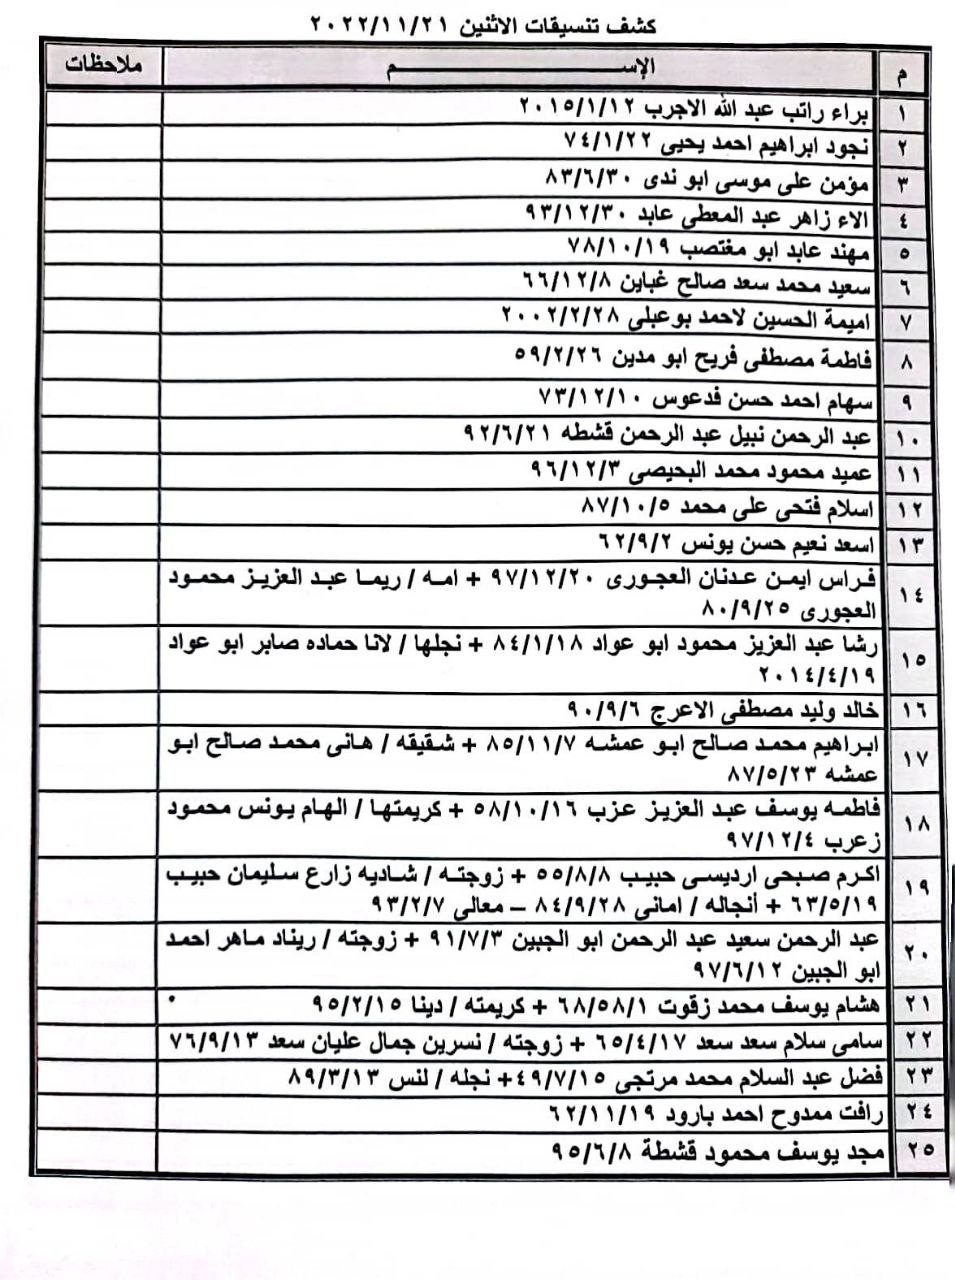 كشف تنسيقات الاثنين ٢٠٢٢/١١/٢١
م الإســـــــــــم ملاحظات
١ براء راتب عبد الله الاجرب ٢٠١٥/١/١٢
٢ نجود ابراهيم احمد يحيى ٧٤/١/٢٢
٣ مؤمن على موسى ابو ندى ٨٣/٦/٣٠
٤ الاء زاهر عبد المعطى عابد ٩٣/١٢/٣٠
٥ مهند عابد ابو مغتصب ٧٨/١٠/١٩
٦ سعيد محمد سعد صالح غباين ٦٦/١٢/٨
٧ اميمة الحسين لاحمد بوعبلى ٢٠٠٢/٢/٢٨
٨ فاطمة مصطفى فريح ابو مدين ٥٩/٢/٢٦
٩ سهام احمد حسن فدعوس ٧٣/١٢/١٠
١٠ عبد الرحمن نبيل عبد الرحمن قشطه ٩٢/٦/٢١
١١ عميد محمود محمد البحيصى ٩٦/١٢/٣
١٢ اسلام فتحى على محمد ٨٧/١٠/٥
١٣ اسعد نعيم حسن يونس ٦٢/٩/٢
١٤ فراس ايمن عدنان العجورى ٩٧/١٢/٢٠ + امه / ريما عبد العزيز محمود
العجورى ٨٠/٩/٢٥
١٥ رشا عبد العزيز محمود ابو عواد ٨٤/١/١٨ + نجلها / لانا حماده صابر ابو عواد
٢٠١٤/٤/١٩
١٦ خالد وليد مصطفى الاعرج ٩٠/٩/٦
١٧ ابراهيم محمد صالح ابو عمشه ٨٥/١١/٧ + شقيقه / هانى محمد صالح ابو
عمشه ٨٧/٥/٢٣
١٨ فاطمه يوسف عبد العزيز عزب ٥٨/١٠/١٦ + كريمتها / الهام يونس محمود
زعرب ٩٧/١٢/٤
١٩ اكرم صبحى ارديسى حبيب ٥٥/٨/٨ + زوجته / شاديه زارع سليمان حبيب
٦٣/٥/١٩ + أنجاله / امانى ٨٤/٩/٢٨ – معالى ٩٣/٢/٧
٢٠ عبد الرحمن سعيد عبد الرحمن ابو الجبين ٩١/٧/٣ + زوجته / ريناد ماهر احمد
ابو الجبين ٩٧/٦/١٢
٢١ هشام يوسف محمد زقوت ٦٨/٥٨/١ + كريمته / دينا ٩٥/٢/١٥
٢٢ سامى سلام سعد سعد ٦٥/٤/١٧ + زوجته / نسرين جمال عليان سعد ٧٦/٩/١٣
٢٣ فضل عبد السلام محمد مرتجى ٤٩/٧/١٥+ نجله / لنس ٨٩/٣/١٣
٢٤ رافت ممدوح احمد بارود ٦٢/١١/١٩
٢٥ مجد يوسف محمود قشطة ٩٥/٦/٨